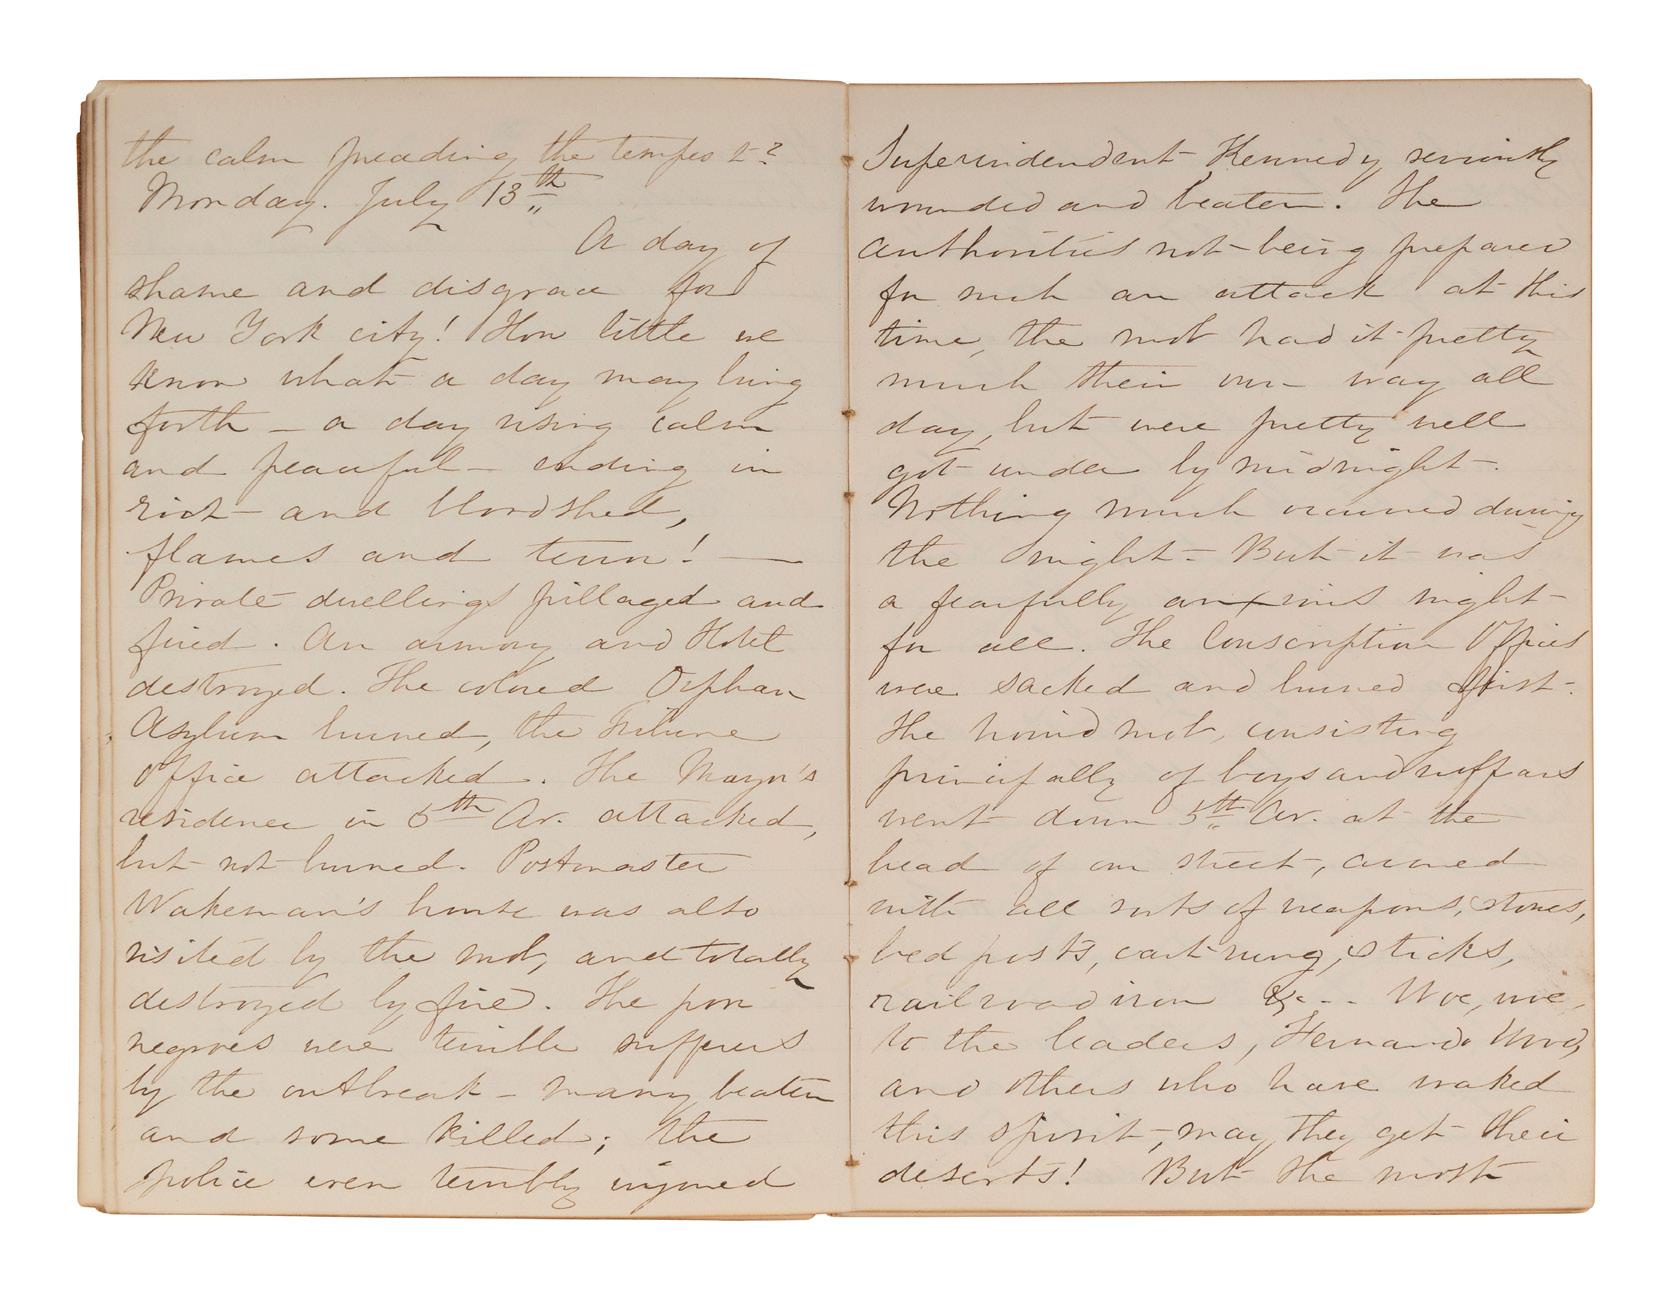 the calm preading the tempest?
Monday. July 13th
A day of
shame and disgrace for
New York city! How little we
know what a day may bring
forth - a day rising calm
and peaceful - ending in
riot and bloodshed,
flames and terror! —
Private dwellings pillaged and
fired. An armory and Hotel
destroyed. The colored Orphan
Asylum burned, the Tribune
Office attacked. The Mayor's
residence in 5th Av. attacked,
but not burned. Postmaster
Wakeman's house was also
visited by the mob, and totally
destroyed by fire. The poor
negroes were terrible sufferers
by the outbreak - many beaten
and some killed; the
police even terribly injured
Superindendent Kennedy seriously
wounded and beaten. The
authorities not being prepared
for such an attack at this
time, the mob had it pretty
much their own way all
day, but were pretty well
got under by midnight.
Nothing much occurred during
the night - But it was
a fearfully anxious night
for all. The Conscription Offices
were sacked and burned first.
The horrid mob, consisting
principally of boys and ruffians
went down 5th Av. at the
head of our street, armed
with all sorts of weapons, stones,
bed posts, cart rung, sticks,
railroad iron &c - . Woe, woe,
to the leaders, Fernando Wood,
and others who have waked
this spirit, may they get their
deserts! But the most